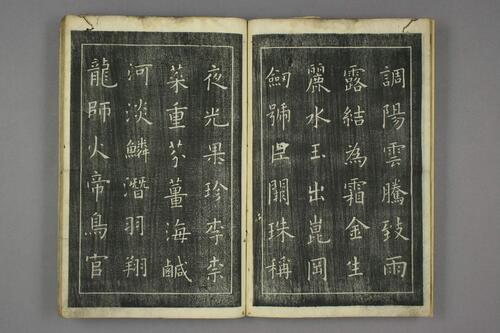 調陽雲騰致雨
露結為霜金生
麗水玉出崑岡
劒號巨闕珠稱
夜光果珍李柰
菜重芥薑海鹹
河淡鱗潛羽翔
龍師火帝鳥官